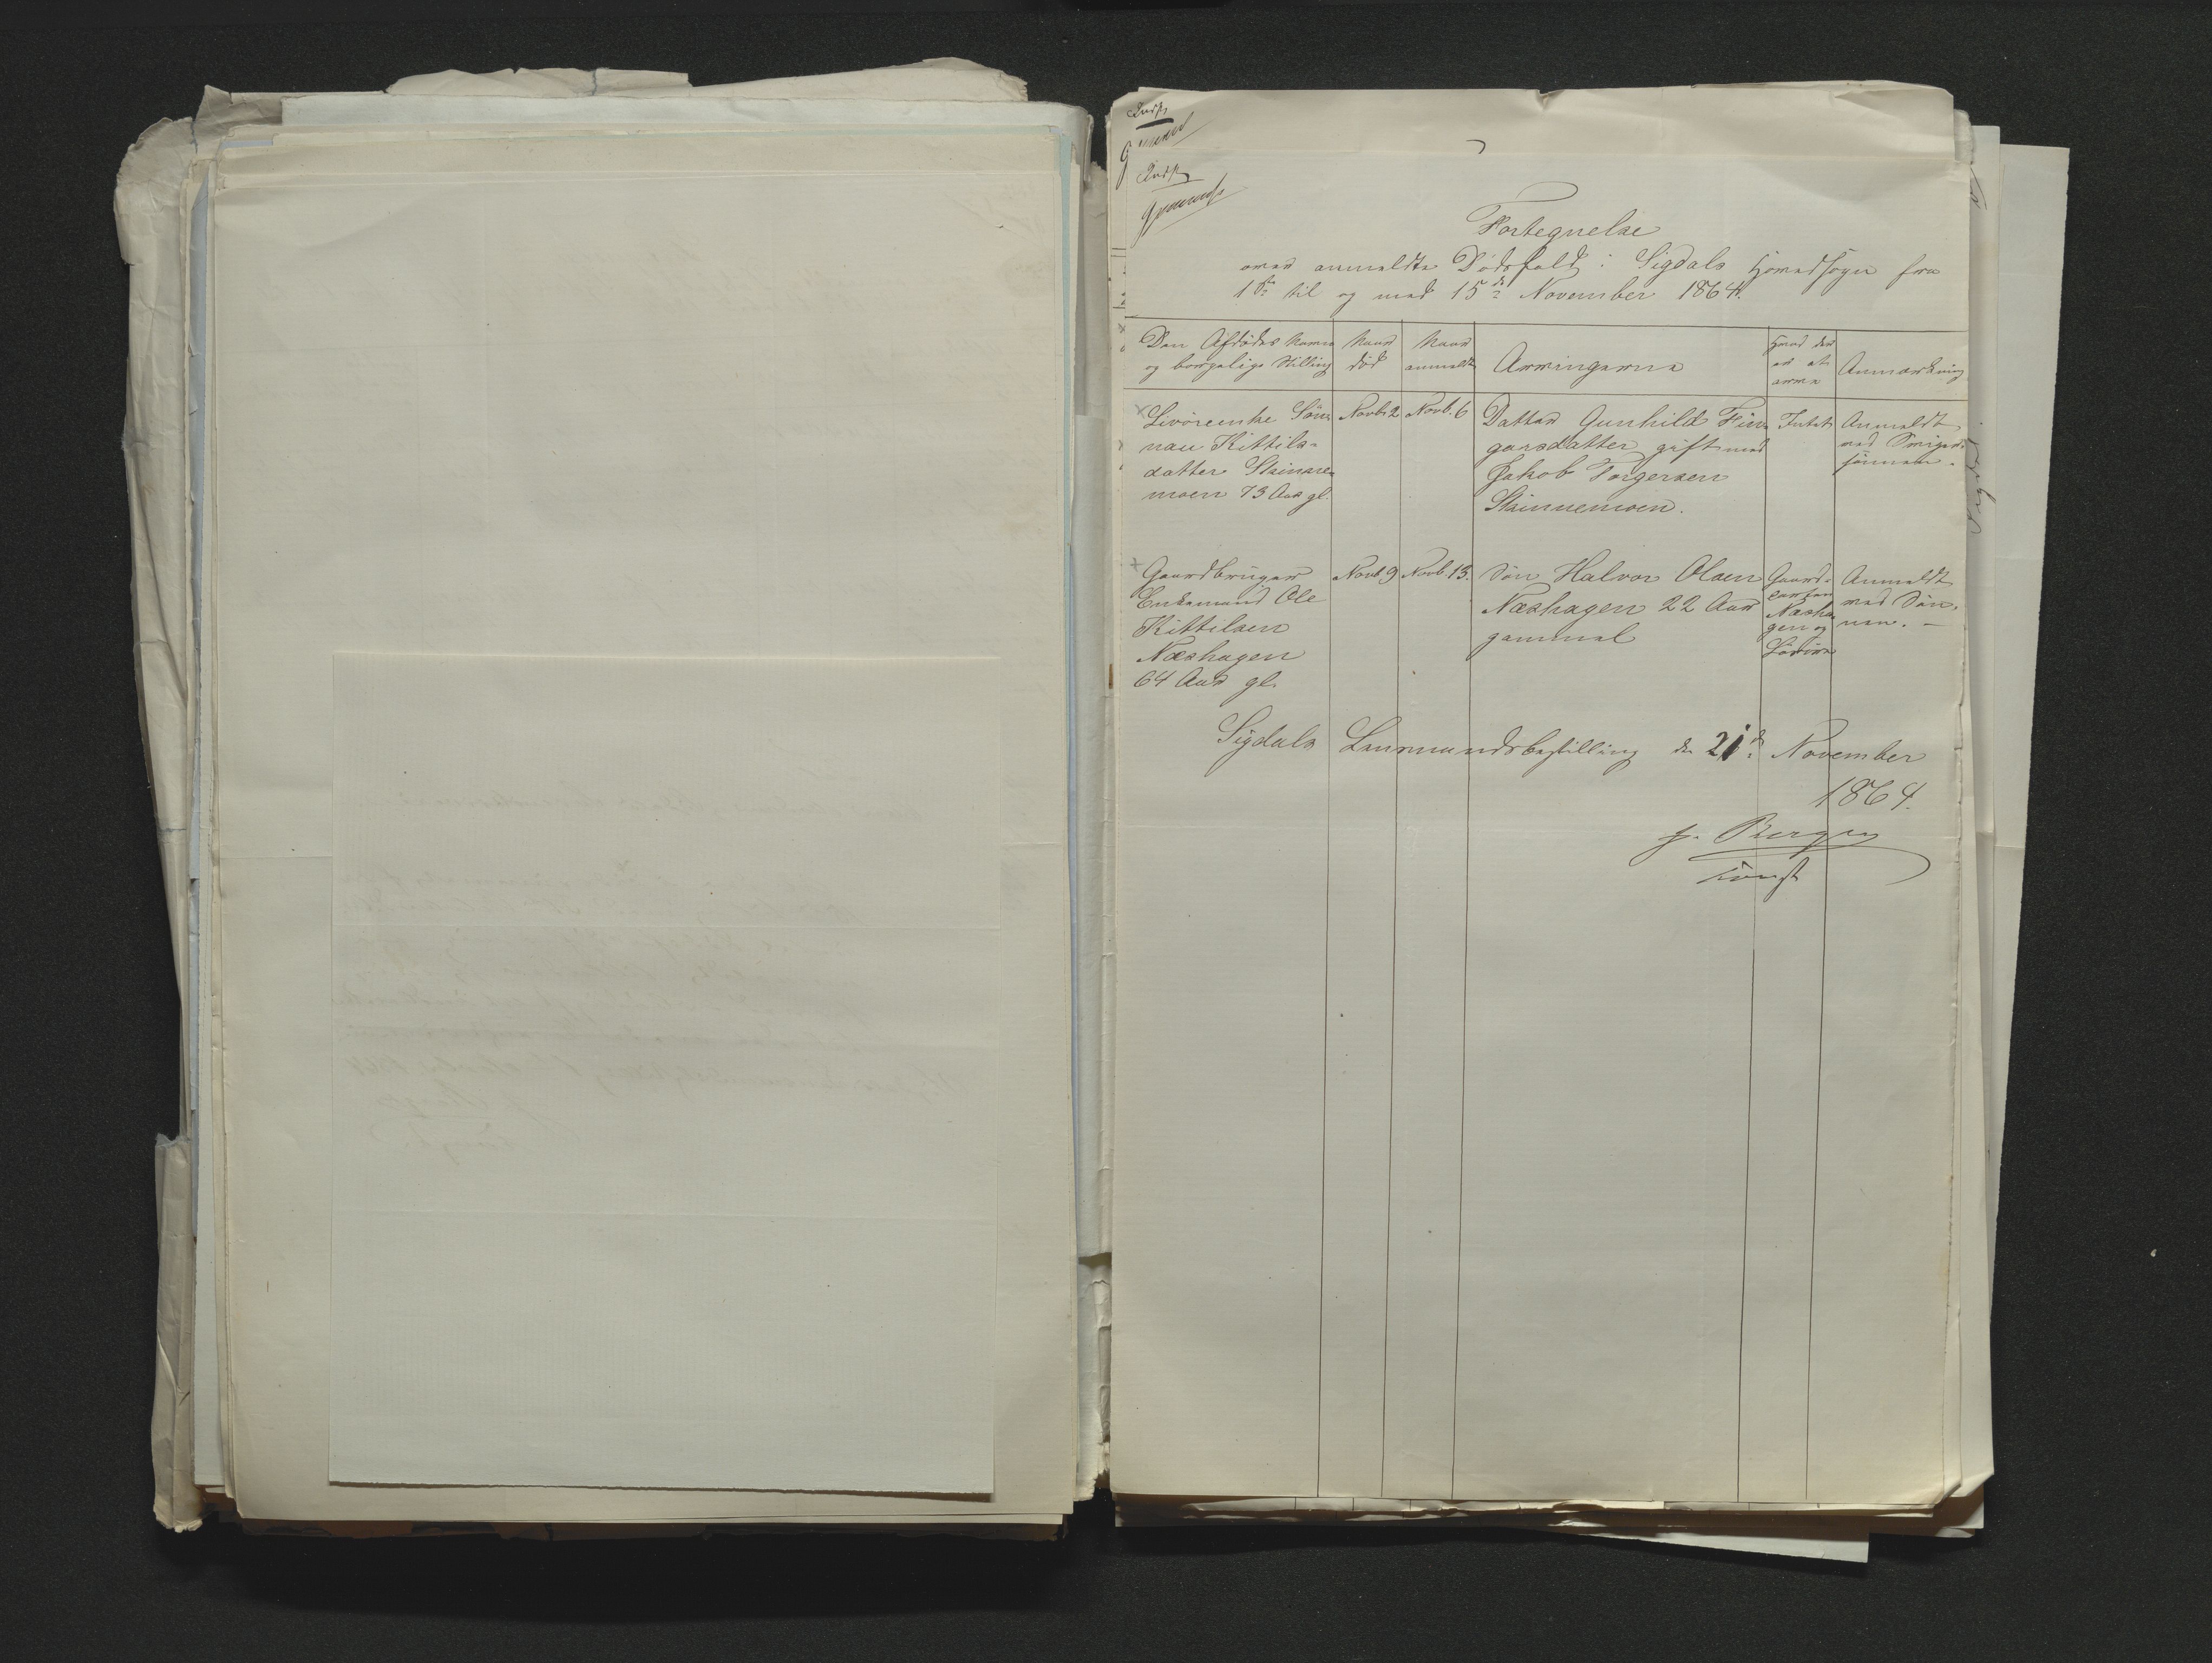 Fortegnelse
over anmeldte Dødsfald i Sigdals Hovedsogn fra
1ste til og med 15de November 1864.
Den Afdødes Navn
og borgelige Stilling
Naar
død
Naar
anmeldt
Arvingerne
Hvad der
er at
arve
Anmærkning
Livørenke Søn
nau Kittils-
datter Skinnre
moen 73 Aar gl.
Novb. 2
Novb. 6
Datter Gunhild
garsdatter gift med
Jakob Torgersen
Skinnemoen.
Intet
Anmeldt
ved Sviger-
sønnen.
Gaardbruger
Enkemand Ole
Kittilsen
Næshagen
64 Aar gl.
Novb. 9
Novb. 13.
Søn Halvor Olsen
Næshagen 22 Aar
gammel
Gaard-
parten
Næsha
gen og
Løsøre
Anmeldt
ved Søn-
nen. —
Sigdals Lensmandsbestilling den 21de November
1864.
J. Bergen
konst